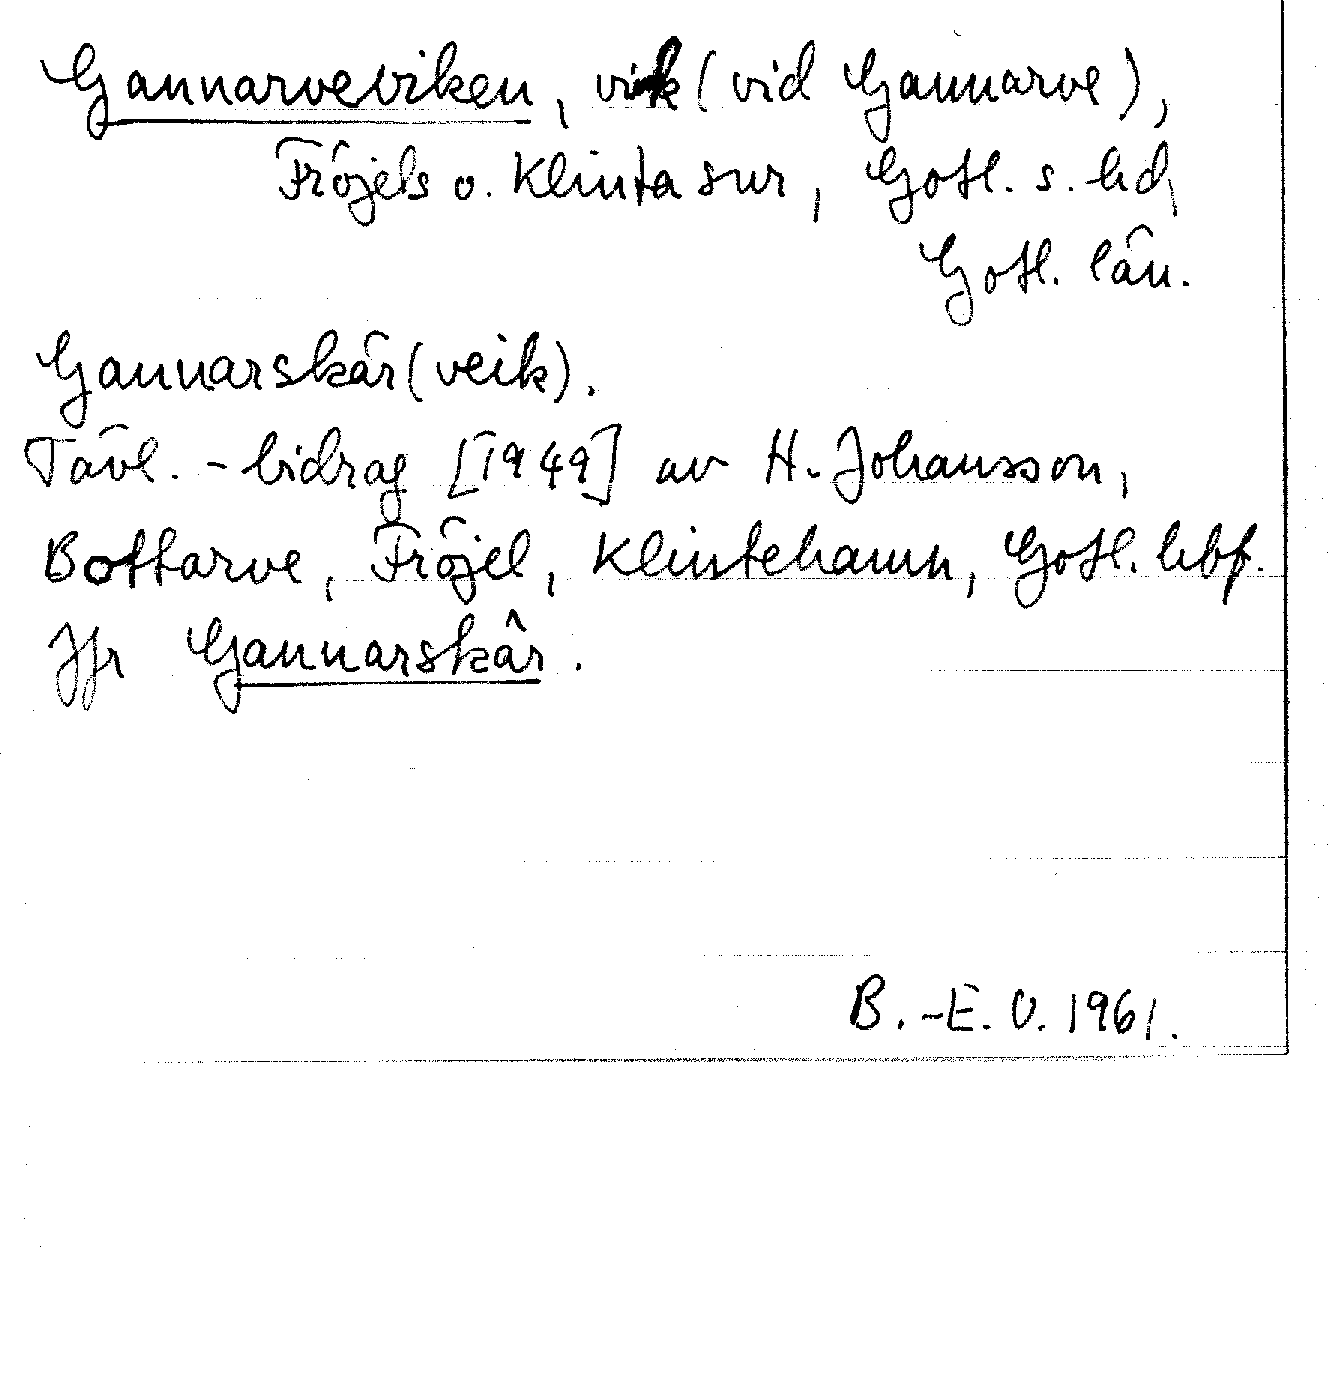 Gannarveviken, vik (vid Gannarve),
Fröjels o. Klinta snr, Gotl. s. hd,
Gotl. län.
Gannarskär(veik).
Tävl.-bidrag [1949] av H. Johansson,
Bottarve, Fröjel, Klintehamn, Gotl. hbf.
Jfr Gannarskär.
B.-E. O. 1961.